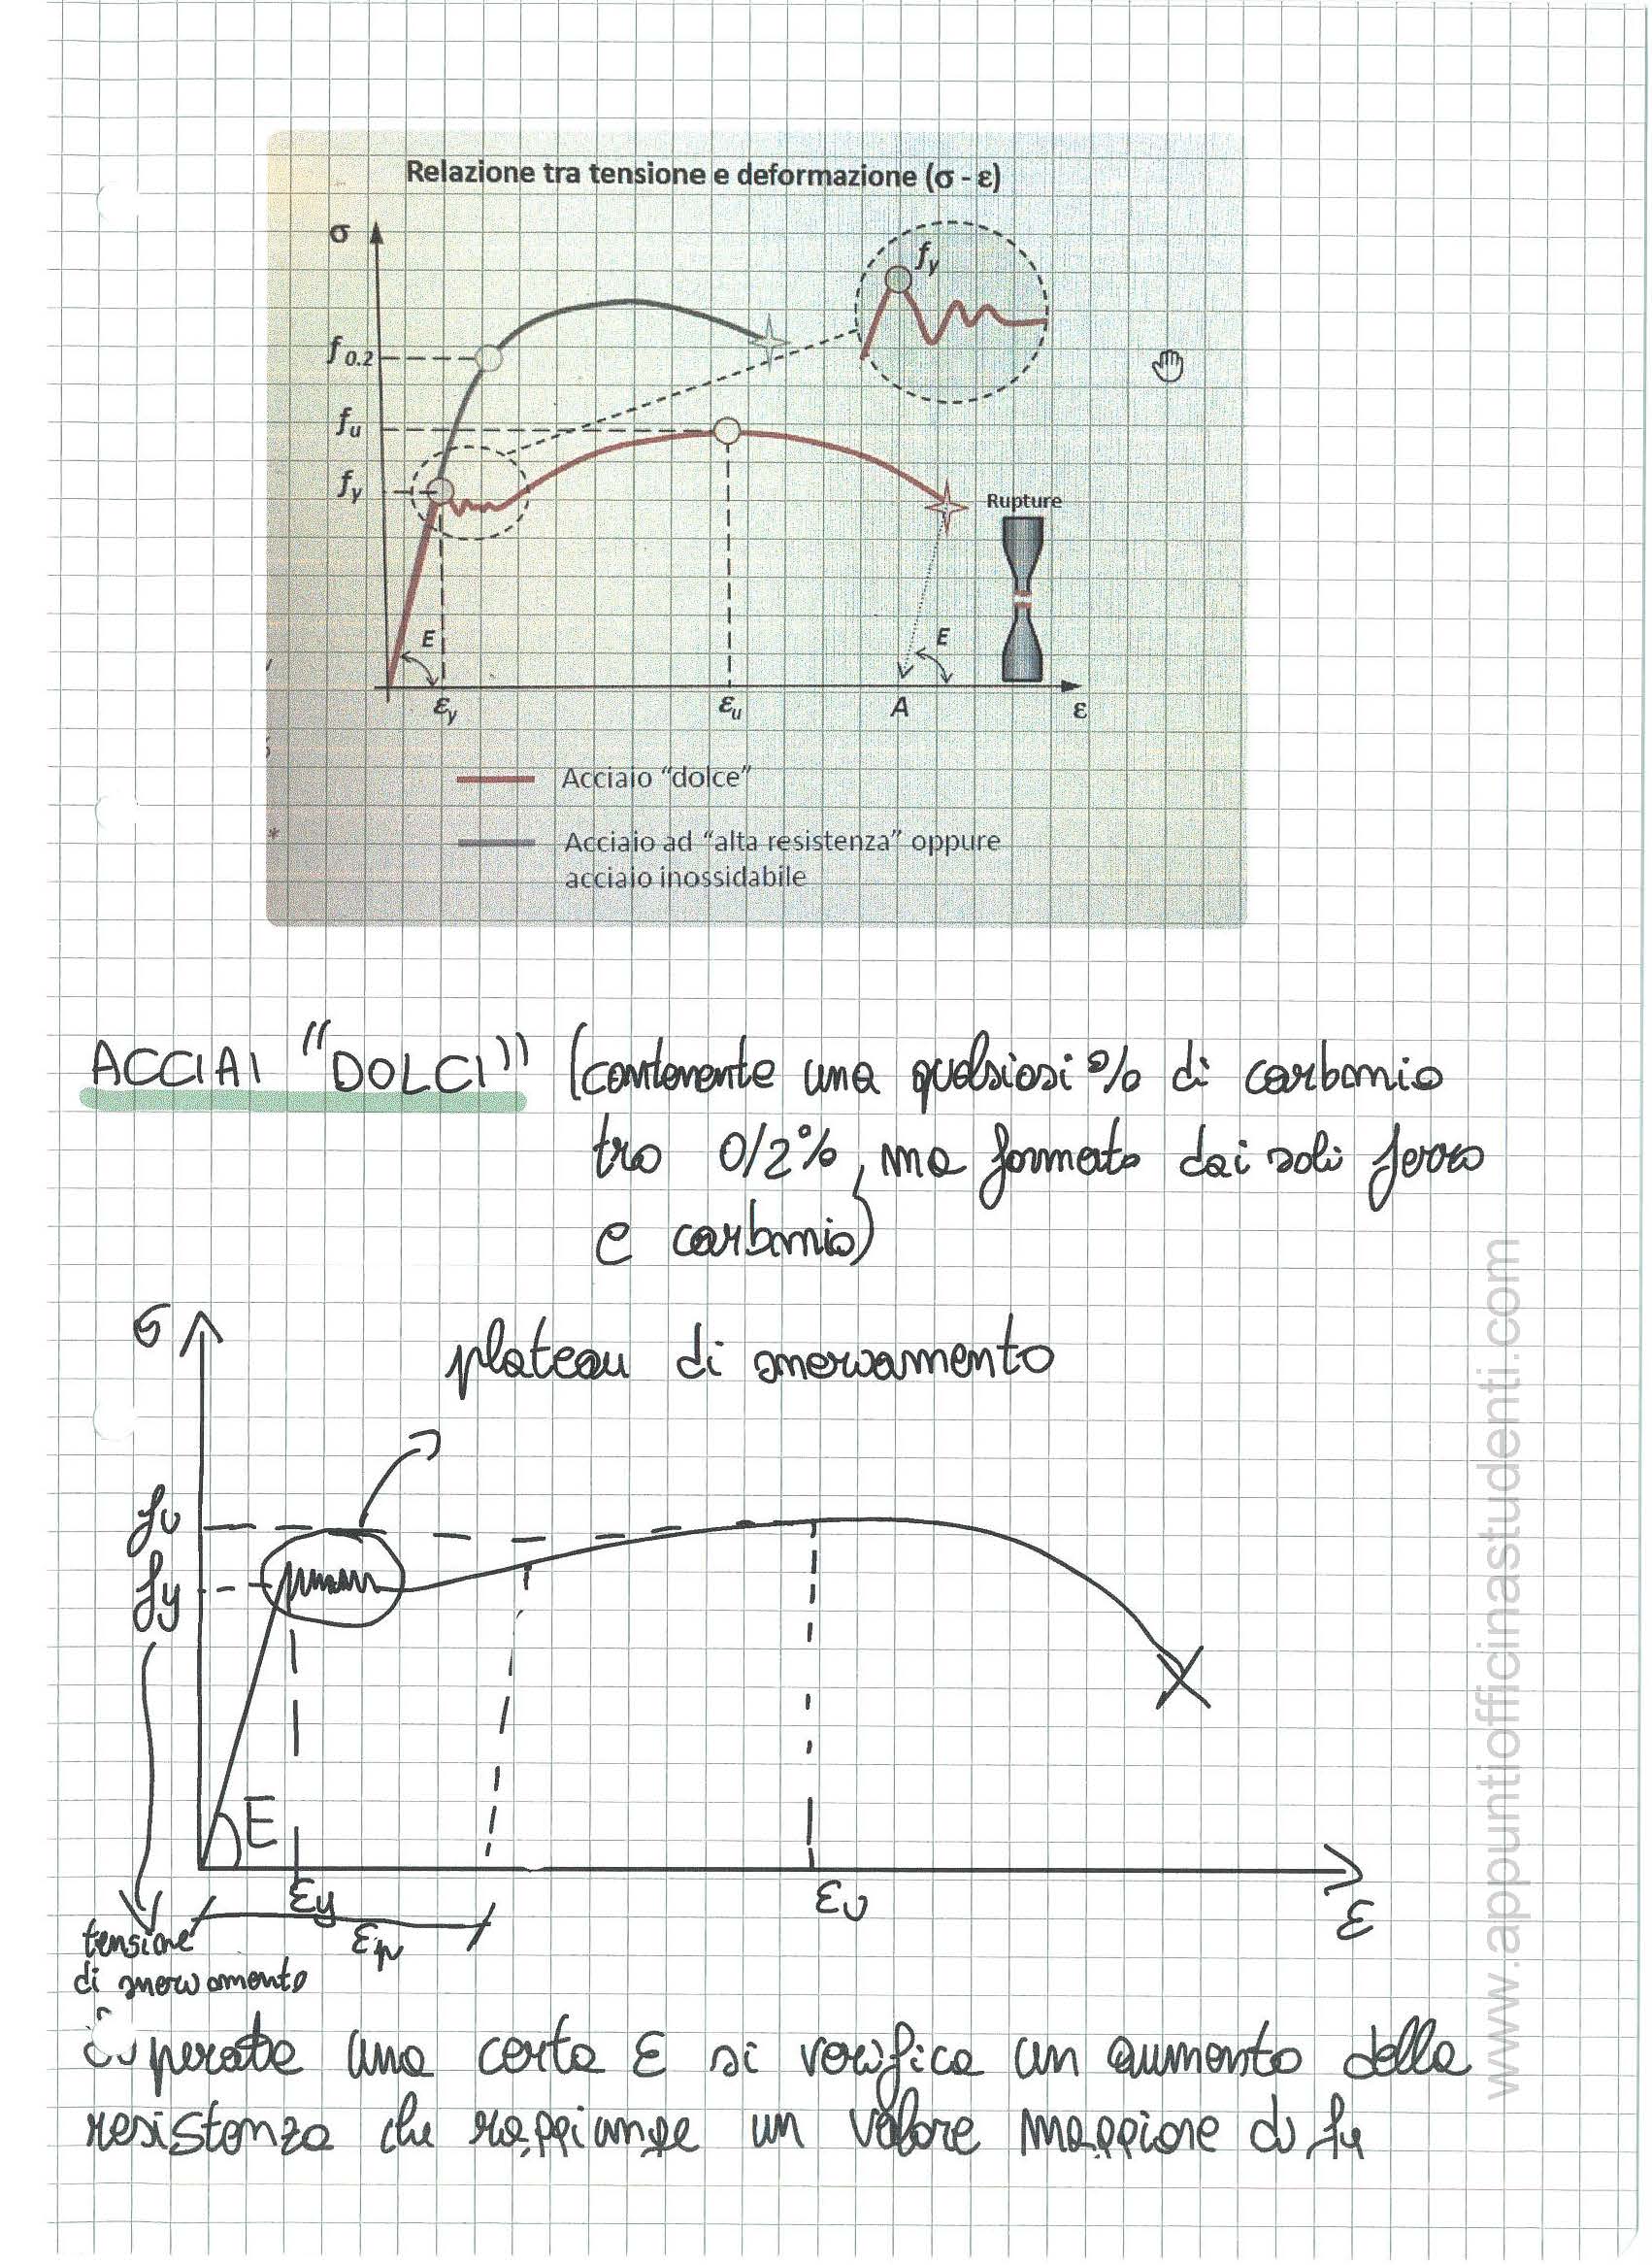 Relazione tra tensione e deformazione (σ - ε)
σ
fy
f0.2
fu
fy
Rupture
E
E
εy
εu
A
ε
Acciaio "dolce"
Acciaio ad "alta resistenza" oppure
acciaio inossidabile
ACCIAI "DOLCI" (contenente una qualsiasi % di carbonio
tra 0/2%, ma formato dai soli ferro
e carbonio)
σ
plateau di snervamento
fu
fy
E
εy
εu
ε
εp
tensione
di snervamento
Superata una certa ε si verifica un aumento della
resistenza che raggiunge un valore maggiore di fy
www.appuntiofficinastudenti.com